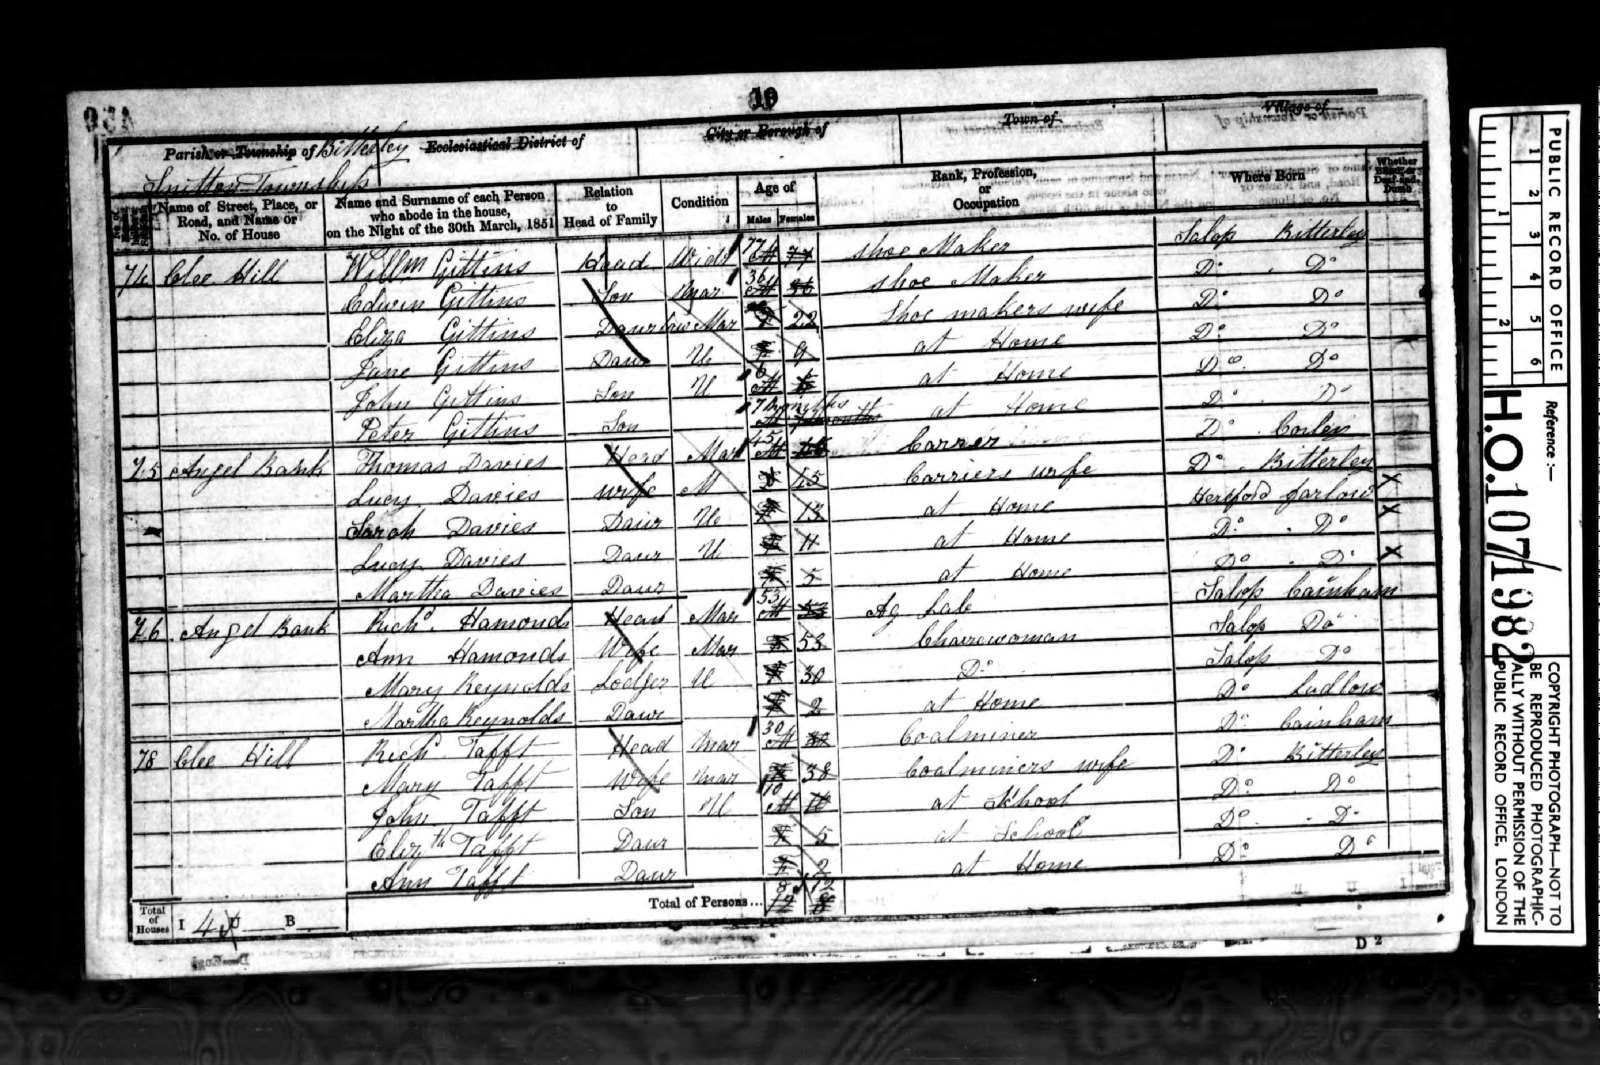 19
Parish or Township of Bitterley Ecclesiastical District of City or Borough of Town of Village of
Snitton Township
Name of Street, Place, or Road, and Name or No. of House
Name and Surname of each Person who abode in the house, on the Night of the 30th March, 1851
Relation to Head of Family
Condition
Age of
Males Females
Rank, Profession, or Occupation
Where Born
Whether Blind, or Deaf-and-Dumb
74 Clee Hill Willm Gittins Head Widr 77 shoe Maker Salop Bitterley
Edwin Gittins Son Mar 36 shoe Maker Do Do
Eliza Gittins Daur law Mar 22 Shoe makers wife Do Do
Jane Gittins Daur U 9 at Home Do Do
John Gittins Son U 6 at Home Do Do
Peter Gittins Son 7 months at Home Do Do
75 Angel Bank Thomas Davies Head Mar 45 Carrer Do Corley
Lucy Davies wife M 45 Carriers wife Do Bitterley
Sarah Davies Daur U 13 at Home Hereford farlow
Lucy Davies Daur U 11 at Home Do Do
Martha Davies Daur 5 at Home Do Do
76 Angel Bank Richd. Hamonds Head Mar 53 Ag Lab Salop Cainham
Ann Hamonds Wife Mar 53 Chairwoman Salop Do
Mary Reynolds Lodger U 30 Do Salop Do
Martha Reynolds Daur 2 at Home Do Ludlow
78 Clee Hill Richd Tafft Head mar 30 Coalminer Do Cainham
Mary Tafft Wife mar 38 Coalminers wife Do Bitterley
John Tafft Son U 10 at School Do Do
Elizth Tafft Daur 5 at School Do Do
Ann Tafft Daur 2 at Home Do Do
Total of Houses I 4 U B Total of Persons... 8 12
D 2
PUBLIC RECORD OFFICE
1 2 3 4 5 6
1 2
Reference :—
H.O.107/1982
COPYRIGHT PHOTOGRAPH—NOT TO
BE REPRODUCED PHOTOGRAPHIC-
ALLY WITHOUT PERMISSION OF THE
PUBLIC RECORD OFFICE, LONDON